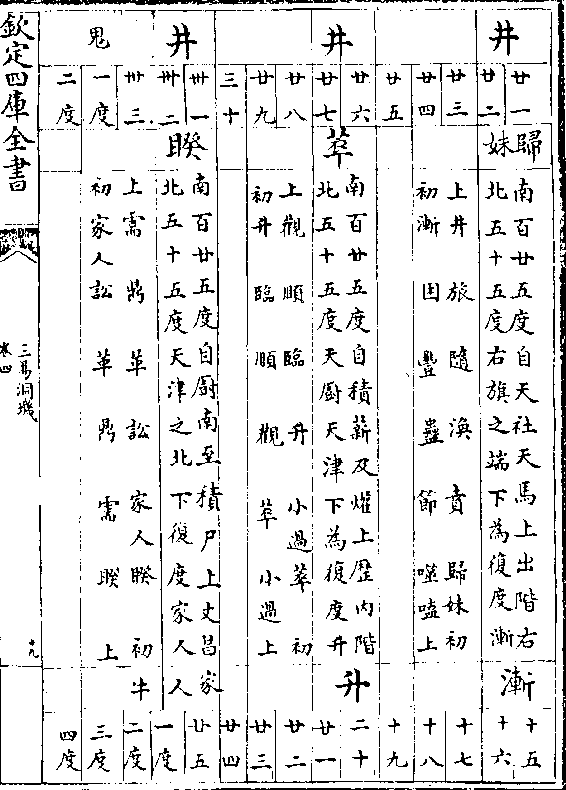 井
井
井
鬼
廿一
廿二
廿三
廿四
廿五
廿六
廿七
廿八
廿九
三十
卅一
卅二
卅三
一度
二度
歸妹
南百廿五度自天社天馬上出階右
北五十五度右旗之端下為復度漸
上井旅隨渙賁歸妹初
初漸困豐蠱節噬嗑上
萃
南百廿五度自積薪及爟上歷內階
北五十五度天廚天津下為復度升
上觀順臨升小過萃初
初升臨順觀萃小過上
睽
南百廿五度自廚南至積尸上文昌家
北五十五度天津之北下復度家人人
上需鼎革訟家人睽初
初家人訟革鼎需睽上
漸
升
牛
十五
十六
十七
十八
十九
二十
廿一
廿二
廿三
廿四
廿五
一度
二度
三度
四度
欽定四庫全書
三易洞璣
卷四
十九